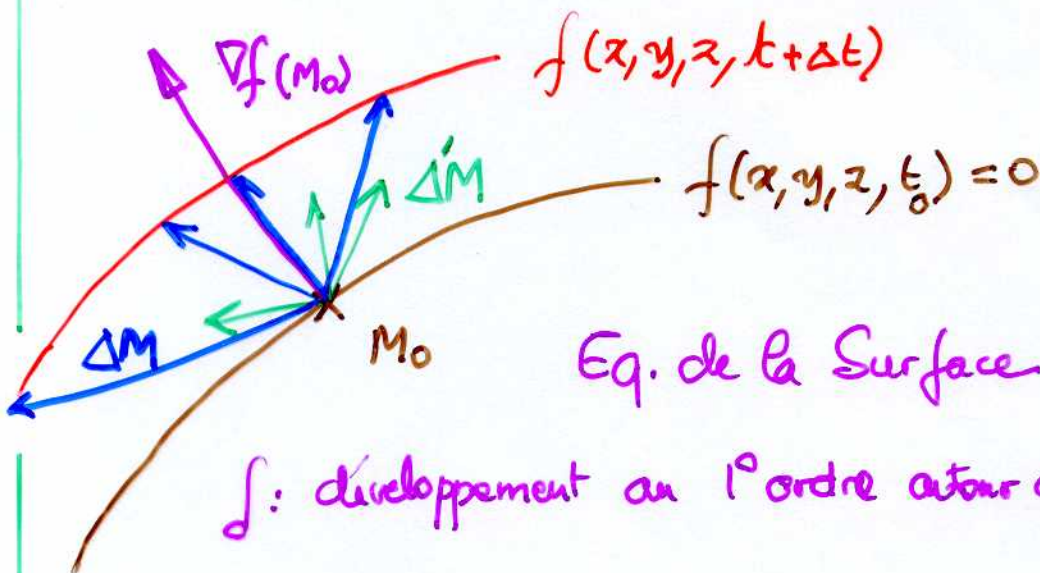 ∇f(M₀)
f(x,y,z,t+Δt)
ΔM
f(x,y,z,t₀)=0
ΔM
M₀
Eq. de la Surface
f: développement au 1° ordre autour